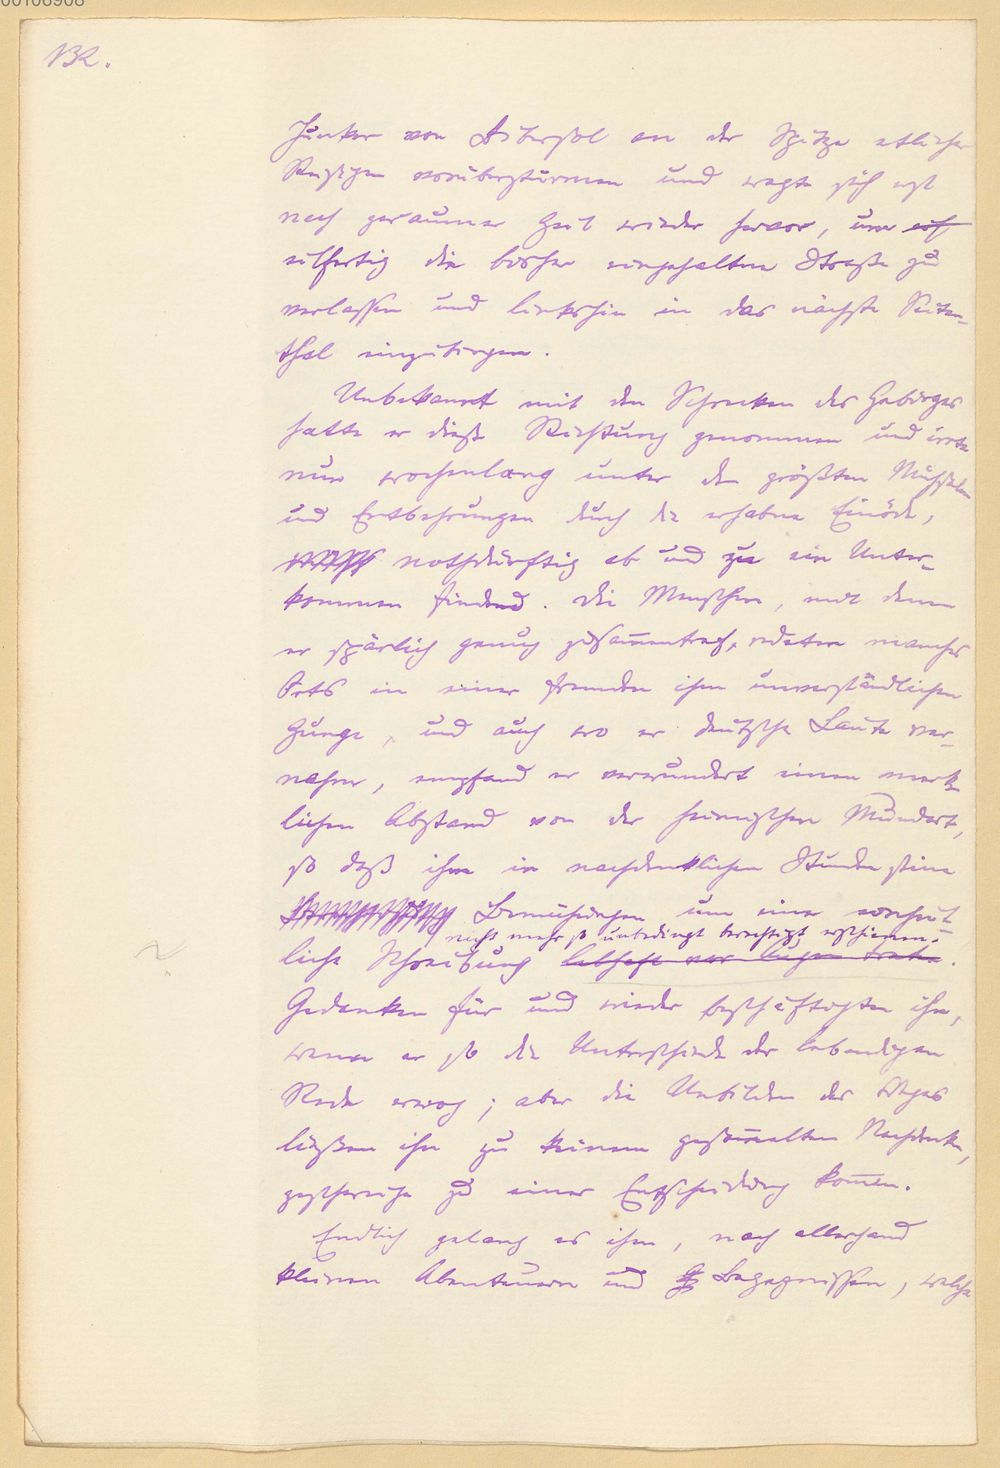 00106908
132.
Junker von Aibersol an der Spitze etlicher
Reisigen vorüberstürmen und wagte sich erst
nach geraumer Zeit wieder hervor, um
eilfertig die bisher eingehaltne Straße zu
verlassen und linkshin in das nächste Seiten-
thal einzubiegen.
Unbekannt mit den Schrecken des Gebirges
hatte er diese Richtung genommen und irrte
nun wochenlang unter den größten Mühsalen
und Entbehrungen durch die erhabne Einöde,
nothdürftig ab und zu ein Unter-
kommen findend. Die Menschen, mit denen
er spärlich genug zusammentraf, redeten manches
Orts in einer fremden ihm unverständlichen
Zunge, und auch wo er deutsche Laute ver-
nahm, empfand er verwundert einen merk-
lichen Abstand von der heimischen Mundart,
so daß ihm in nachdenklichen Stunden seine
Bemühungen um eine einheit-
nicht mehr so unbedingt berechtigt erschienen.
liche Schreibung
Gedanken für und wieder beschäftigten ihn,
wenn er so die Unterschiede der lebendigen
Rede erwog; aber die Unbilden des Weges
ließen ihn zu keinem gesammelten Nachdenken,
geschweige zu einer Entscheidung kommen.
Endlich gelang es ihm, nach allerhand
kleinen Abenteuern und Begegnissen, welche